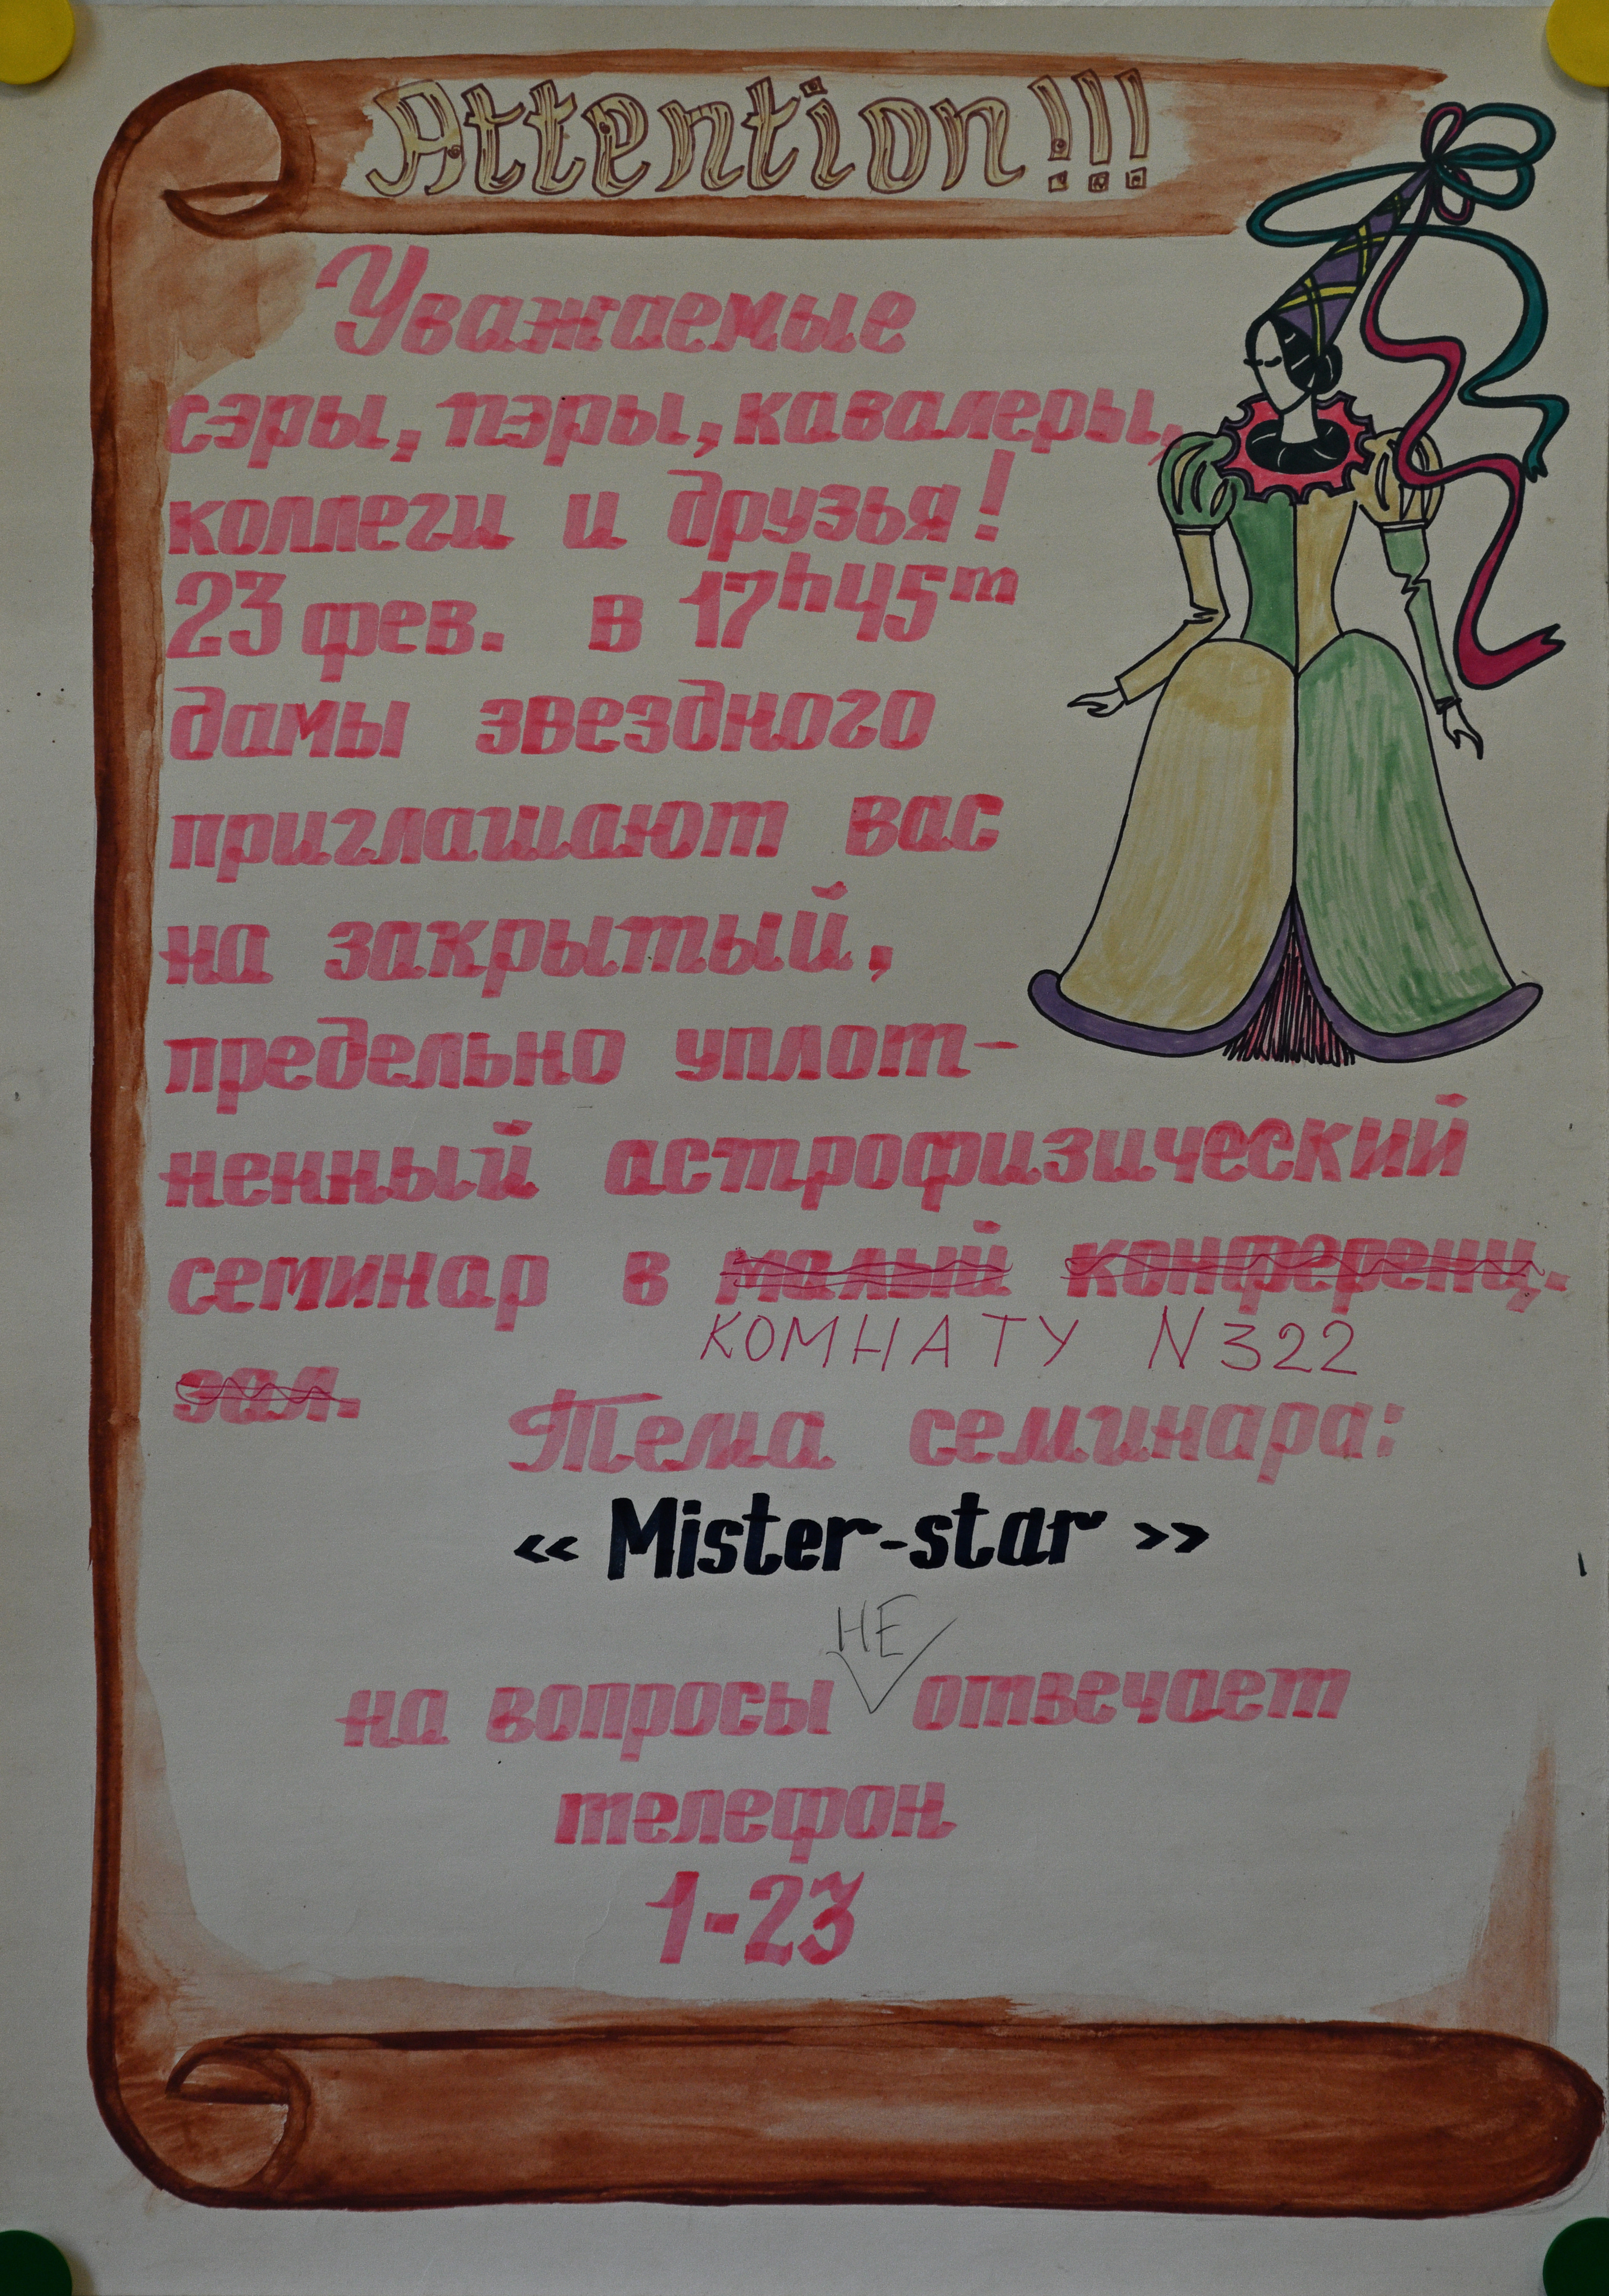 Attention!!!
Уважаемые
сэры, пэры, кавалеры,
коллеги и друзья!
23 фев. в 17h45m
дамы звездного
приглашают вас
на закрытый,
предельно уплот-
ненный астрофизический
семинар в малый конференц.
КОМНАТУ N322
зал.
Тема семинара:
« Mister-star »
НЕ
на вопросы отвечает
телефон
1-23